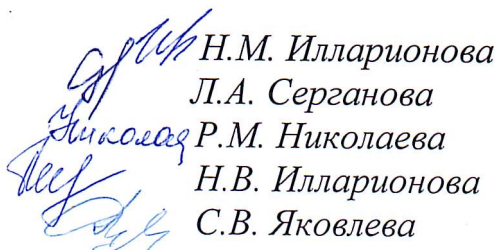 Н.М. Илларионова
Л.А. Серганова
Николаа Р.М. Николаева
Н.В. Илларионова
С.В. Яковлева